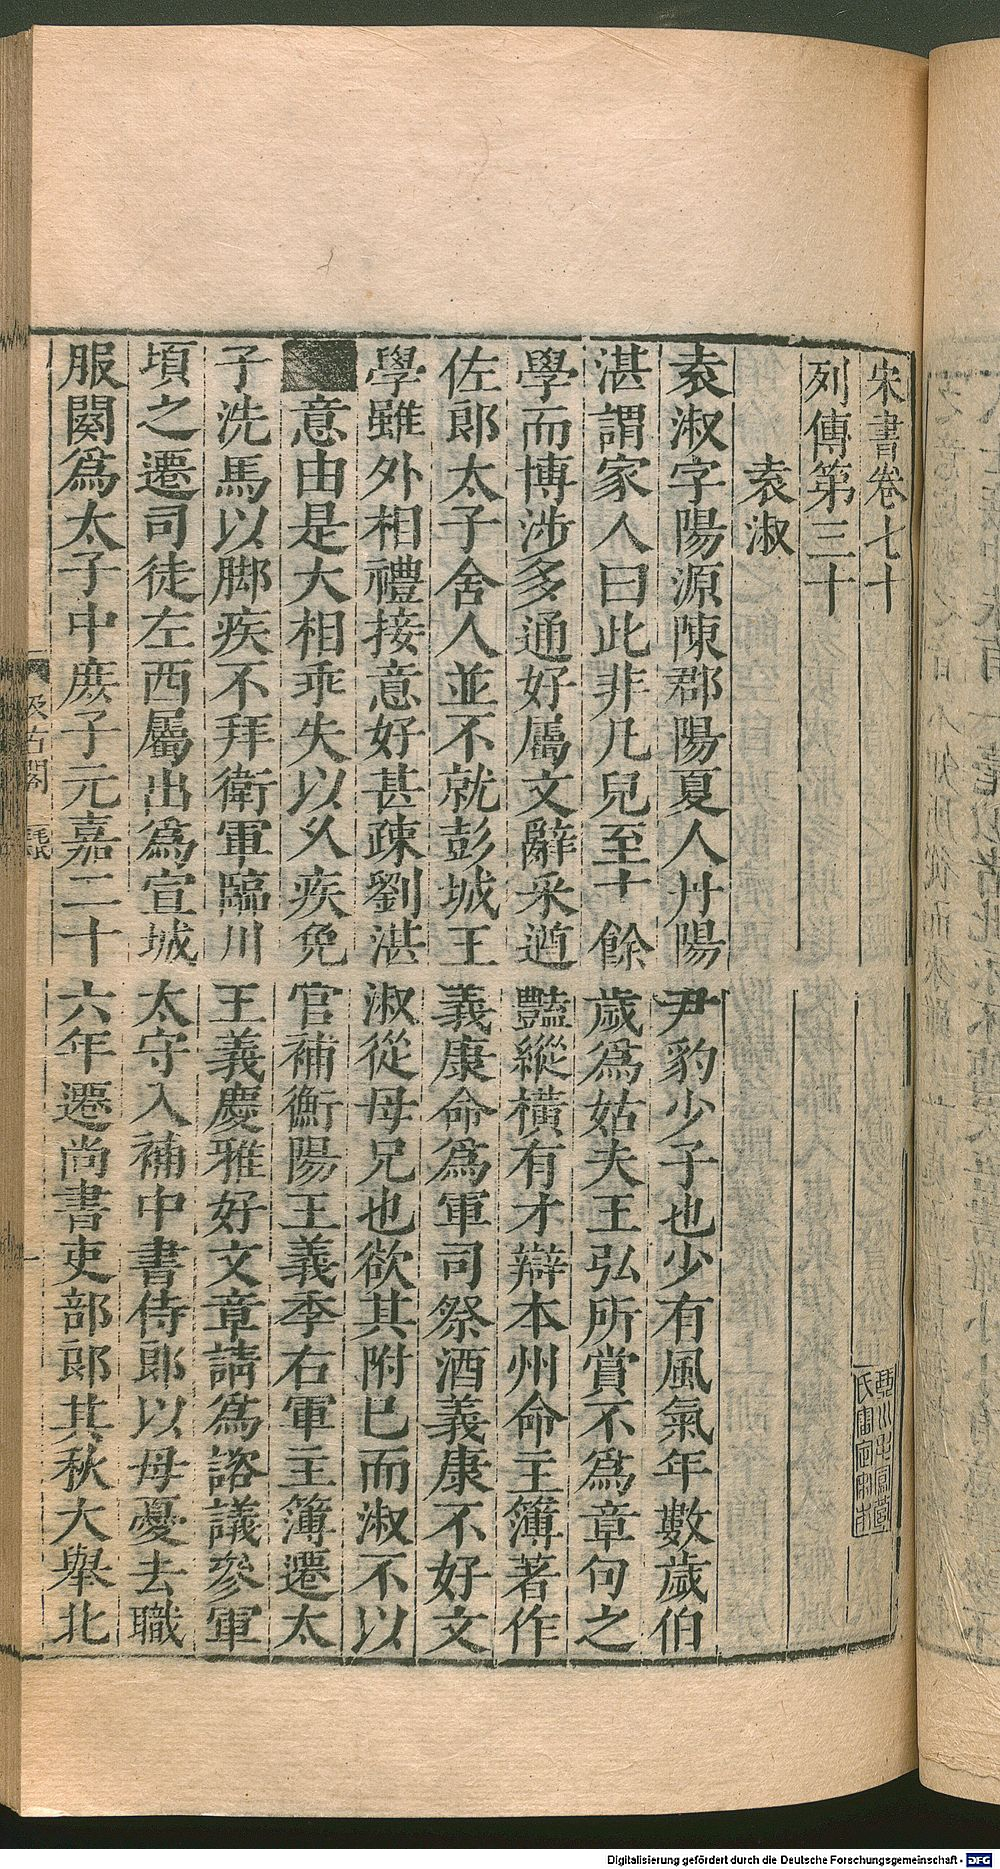 宋書卷七十
列傳第三十
袁淑
袁淑字陽源陳郡陽夏人丹陽尹豹少子也少有風氣年數歲伯
湛謂家人曰此非凡兒至十餘歲爲姑夫王弘所賞不爲章句之
學而博涉多通好屬文辭采遒豔縱橫有才辯本州命主簿著作
佐郎太子舍人並不就彭城王義康命爲軍司祭酒義康不好文
學雖外相禮接意好甚疎劉湛淑從母兄也欲其附巳而淑不以
意由是大相乖失以久疾免官補衡陽王義季右軍主簿遷太
子洗馬以脚疾不拜衛軍臨川王義慶雅好文章請爲諮議參軍
頃之遷司徒左西屬出爲宣城太守入補中書侍郎以母憂去職
服闋爲太子中庶子元嘉二十六年遷尚書吏部郎其秋大舉北
汲古閣
毛氏
Digitalisierung gefördert durch die Deutsche Forschungsgemeinschaft - DFG